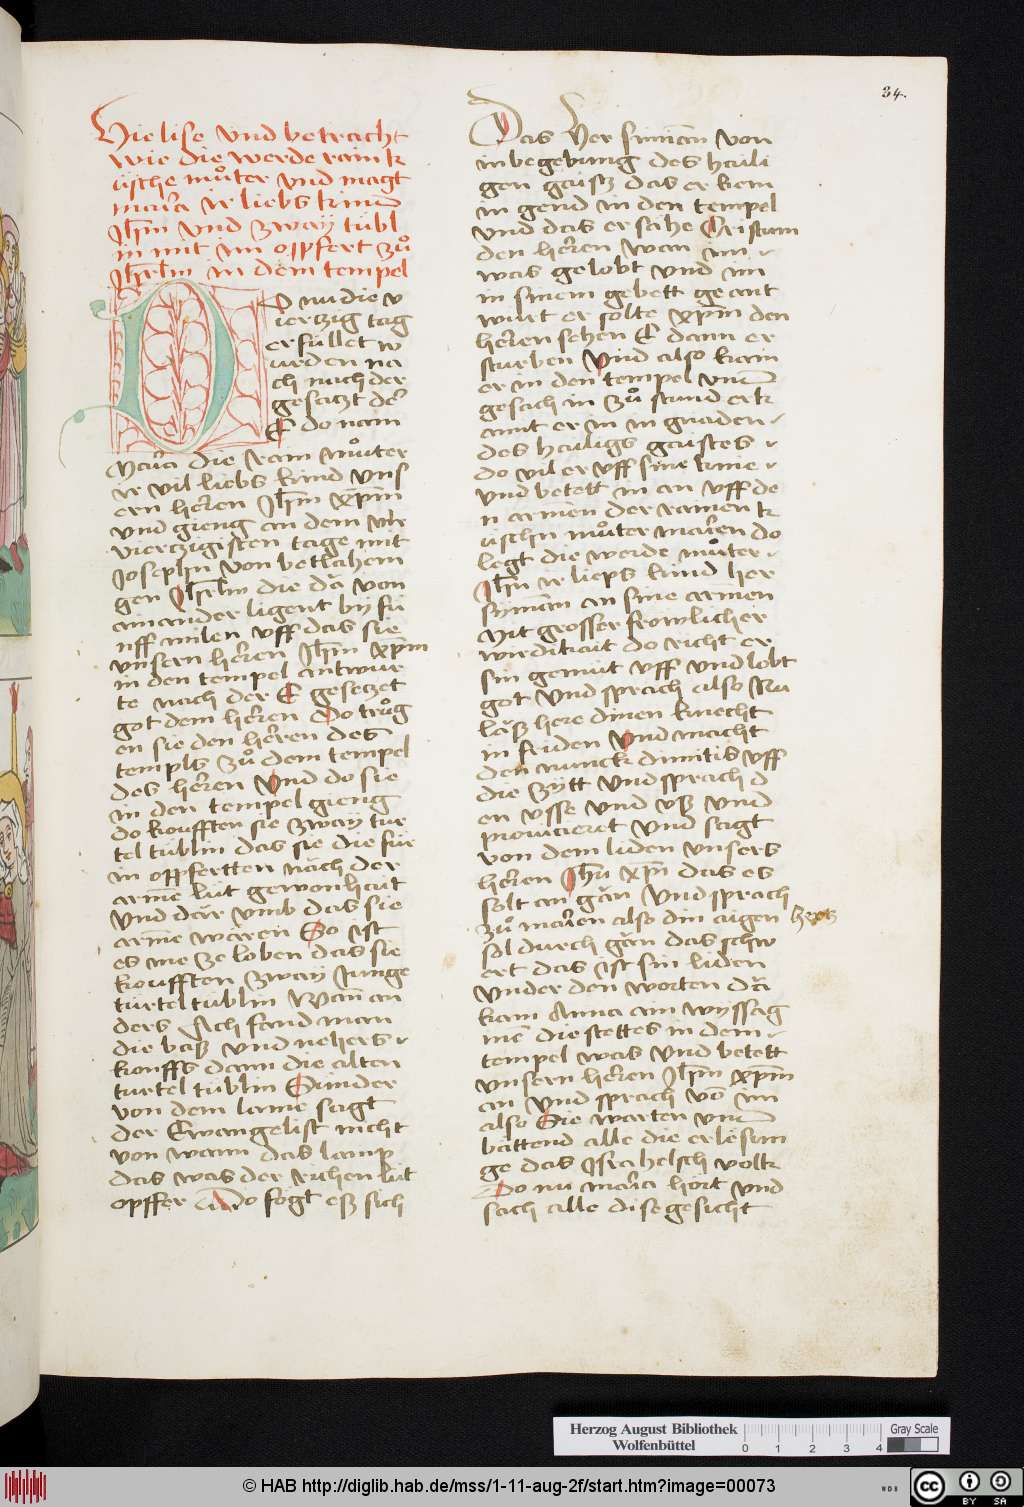 34.
Hie lise vnd betracht
wie die werde rain k
üsche můter vnd magt
maria ir liebs kind
Jhm̄ vnd zway tübl
in mit im oppfert zů
Jhrlm in dem tempel
DO nu die v
ierzig tag
erfüllet w
urden na
ch nach der
gesatzt der
E do nam
Maria die rain můter
ir vil liebs kind vns
ern herren Jhm̄ xp̄m
vnd gieng an dem
vierzigisten tage mit
Joseph von bethlahem
gen Jhrlm die da von
ainander ligent by fü
nff milen vff das sie
vnsern herren Jhm̄ xp̄m
in den tempel antwur
te nach der E gesetzet
got dem herren Do trůg
en sie den herren des
templs zů dem tempel
des herren Vnd do sie
in den tempel gieng
do koufften sie zway tur
tel tüblin das sie die für
in oppfertten näch der
armē lüt gewonhait
Vnd där vmb das sie
armē wären So ist
es me ze loben das sie
koufften zway Junge
türtel tüblin Wan̄ an
ders Ach fand man
die baß vnd nehers
kouffs dann die alten
turtel tüblin Sunder
von dem lame sagt
der Ewangelist nicht
von wann das lamp
das was der richen lüt
opffer Do fögt eß sich
Das her simian von
inbegebung des haili
gen gaisz das er kem
in gend in den tempel
vnd das er sähe Cristum
den herren wan im
was gelobt vnd im
in sinem gebett geant
wurt er solte xp̄m den
herren sehen E dann er
sturben Vnd also kam
er in den tempel vnd
gesach in zů stund erk
annt er in in gnaden
des hailigs gaistes
do vil er vff sine knie
vnd betett in an vff de
n armen der rainen k
üschn můter marien do
legt die werde můter
Jhm̄ ir lieps kind her
symian an sine armen
Mit grosser frowlicher
wirdikait do richt er
sin gemüt vff vnd lobt
got vnd sprach also Nu
läsz here dinen knecht
in friden Vnd macht
den nunck dimitis vff
die zytt vnd sprach d
en vsse vnd vß vnd
pronuncieret vnd sagt
von dem liden vnsers
herren Jhū xp̄i das es
solt an gän vnd sprach
zů marien also din aigen hertz
sol durch gän das schw
ert das ist sin liden
Vnder den worten dä
kam Anna ain wyssag
inē die stettes in dem
tempel was vnd betett
vnsern herren Jhm̄ xp̄m
an vnd sprach vō im
also Die warten vnd
battend alle die erlesum
ge das Jsrahelsch volk
Do nu maria hört vnd
sach alle dise gesicht
Herzog August Bibliothek
Wolfenbüttel
0 1 2 3 4
Gray Scale
© HAB http://diglib.hab.de/mss/1-11-aug-2f/start.htm?image=00073
WDB
cc BY SA